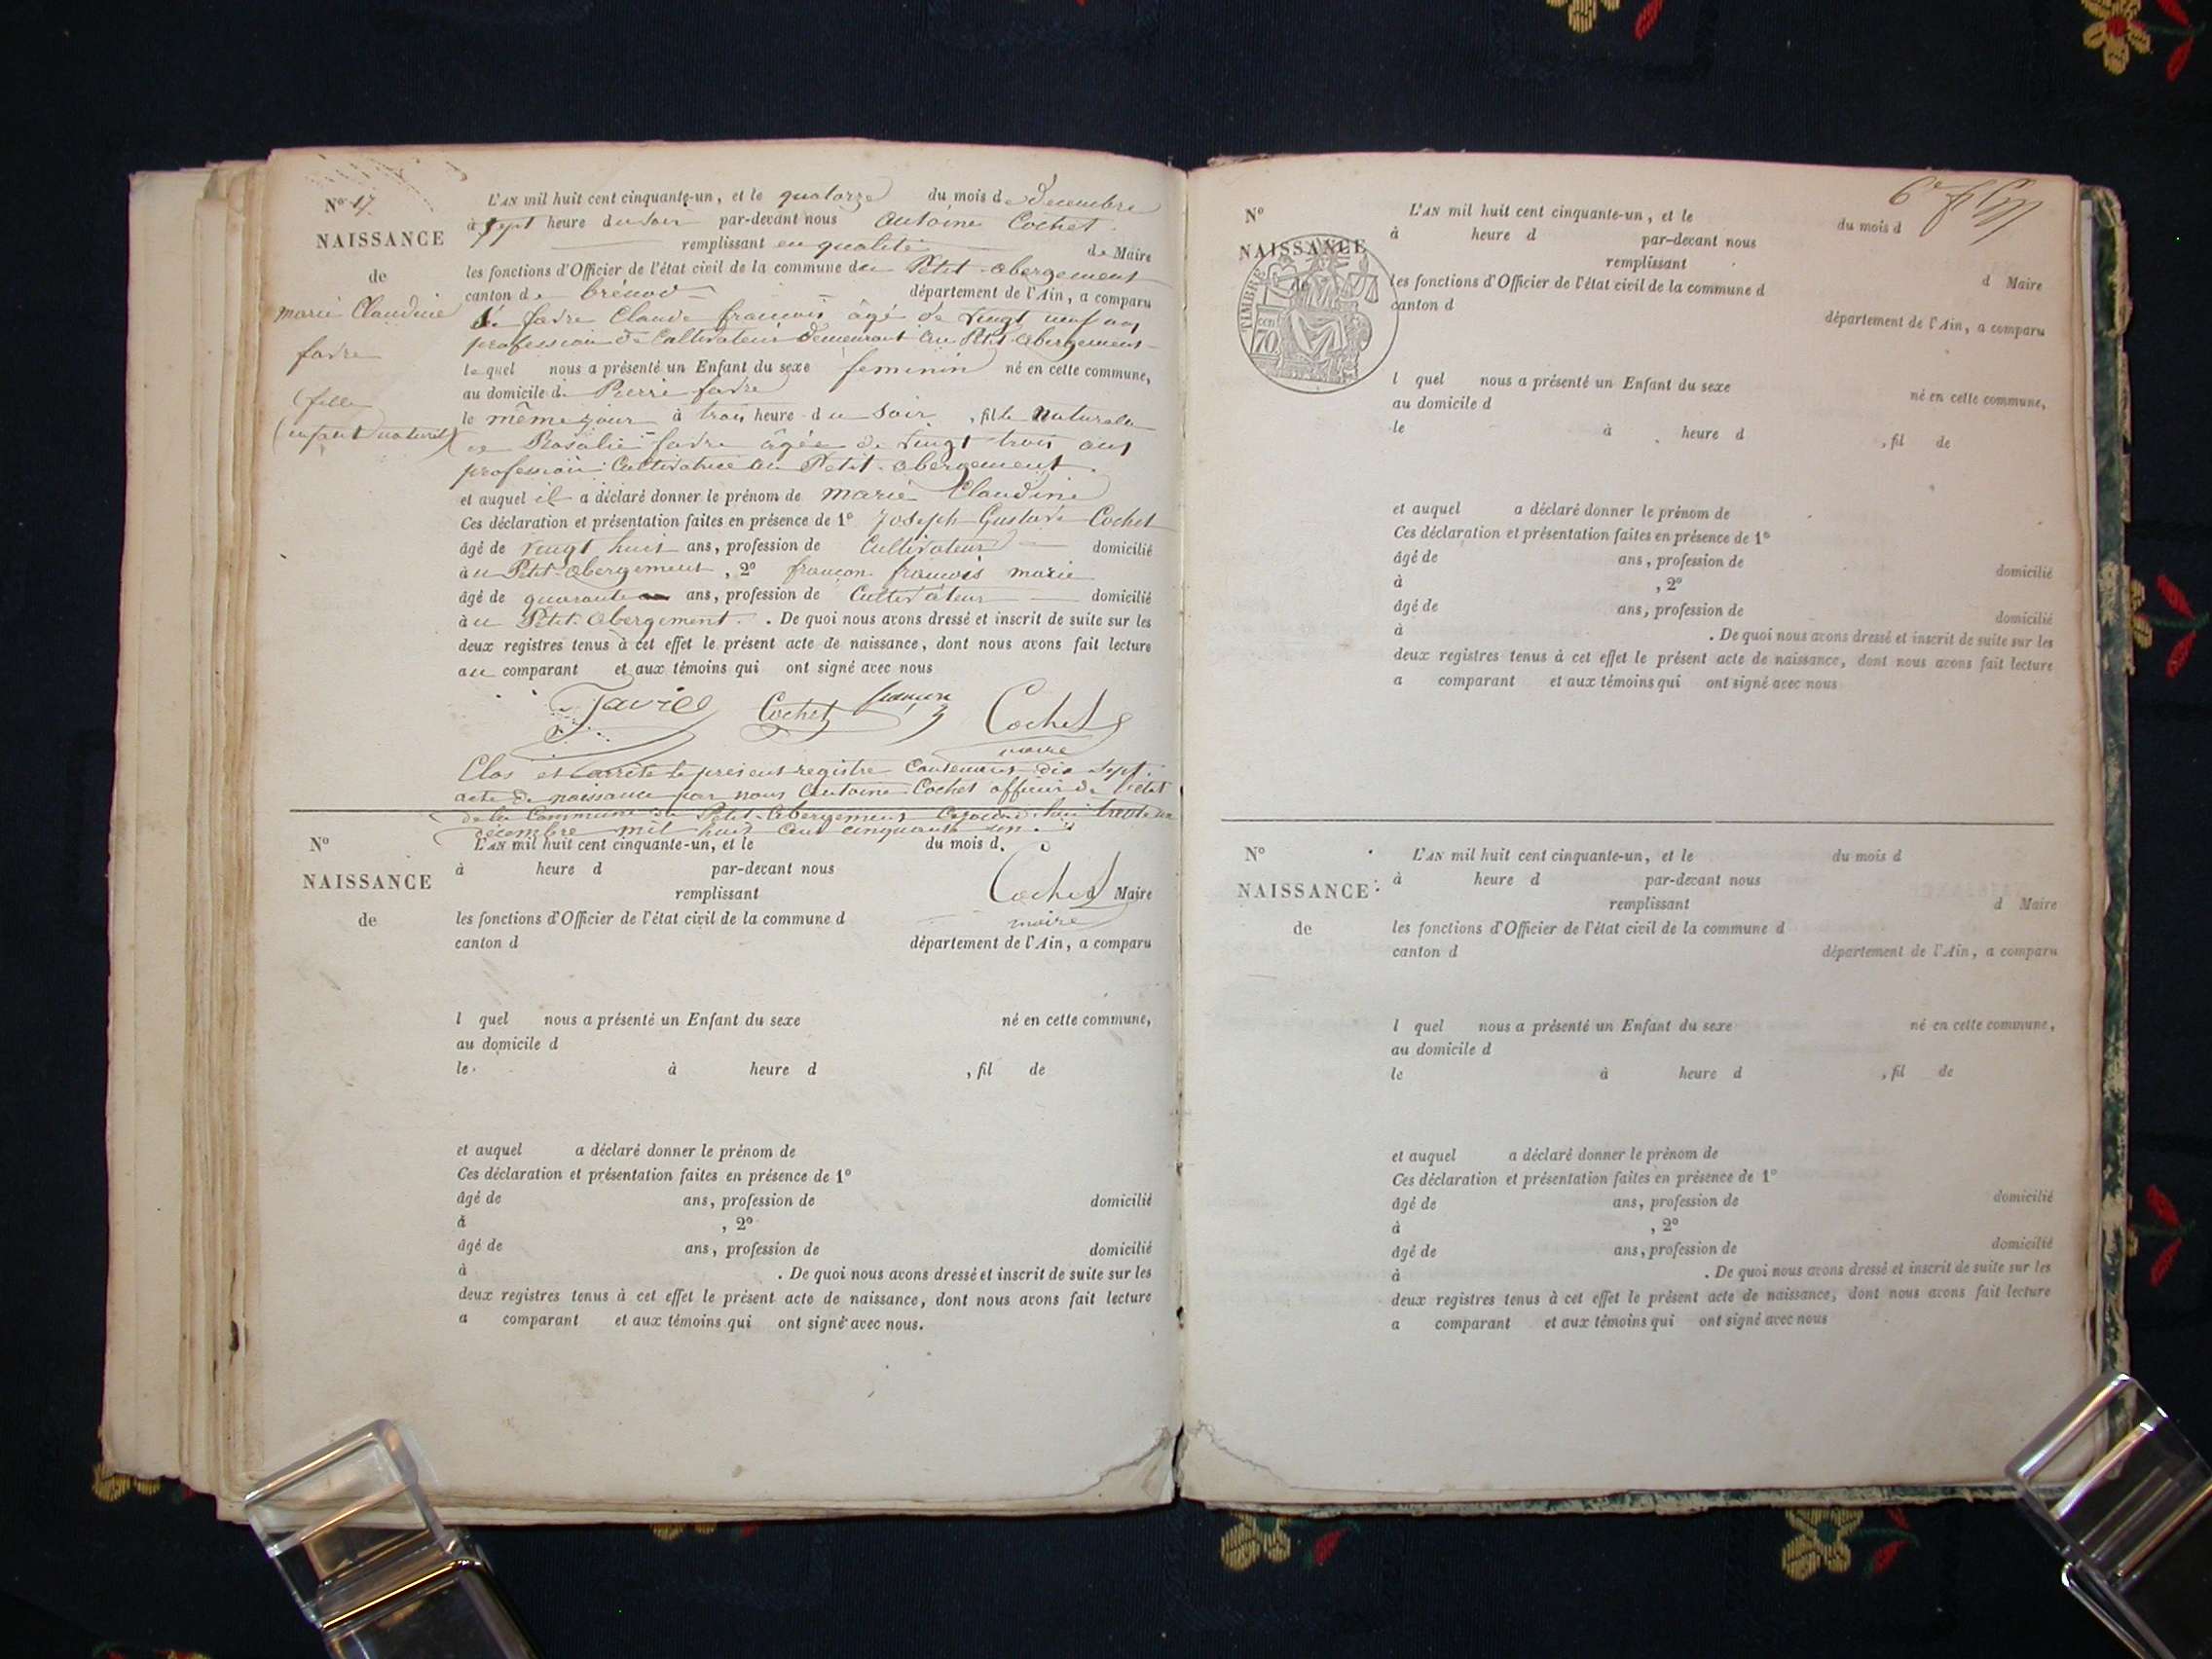 N° 17
NAISSANCE
de
marie Claudine
favre
(fille
(enfant naturel)
L'AN mil huit cent cinquante-un, et le quatorze du mois de Decembre
à sept heure du soir par-devant nous antoine Cochet
remplissant en qualité de Maire
les fonctions d'Officier de l'état civil de la commune du Petit-abergement
canton de brénod département de l'Ain, a comparu
favre Claude francois âgé de vingt neuf ans
profession de Cultivateur demeurant au Petit abergement
lequel nous a présenté un Enfant du sexe feminin né en cette commune,
au domicile de Pierre favre
le même jour à trois heure du soir, fille naturelle
de Rosalie favre âgée de vingt trois ans
profession Cultivatrice au Petit-abergement.
et auquel il a déclaré donner le prénom de marie Claudine
Ces déclaration et présentation faites en présence de 1° Joseph Gustave Cochet
âgé de vingt huit ans, profession de Cultivateur domicilié
àu Petit-abergement, 2° francon francois marie
âgé de quarante ans, profession de Cultivateur domicilié
àu Petit abergement. . De quoi nous avons dressé et inscrit de suite sur les
deux registres tenus à cet effet le présent acte de naissance, dont nous avons fait lecture
au comparant et aux témoins qui ont signé avec nous
Favre Cochet francon Cochet
maire
Clos et arrêté le présent registre Contenant dix sept
acte de naissance par nous Antoine Cochet officier de l'état
de la Commune du Petit-abergement Cejourd'hui trente un
decembre mil huit cent cinquante un.
Cochet
maire
N°
NAISSANCE
de
L'AN mil huit cent cinquante-un, et le du mois d
à heure d par-devant nous
remplissant d Maire
les fonctions d'Officier de l'état civil de la commune d
canton d département de l'Ain, a comparu
l quel nous a présenté un Enfant du sexe né en cette commune,
au domicile d
le à heure d , fil de
et auquel a déclaré donner le prénom de
Ces déclaration et présentation faites en présence de 1°
âgé de ans, profession de domicilié
à , 2°
âgé de ans, profession de domicilié
à . De quoi nous avons dressé et inscrit de suite sur les
deux registres tenus à cet effet le présent acte de naissance, dont nous avons fait lecture
a comparant et aux témoins qui ont signé avec nous.
N°
NAISSANCE
de
TIMBRE
70
L'AN mil huit cent cinquante-un, et le du mois d
à heure d par-devant nous
remplissant d Maire
les fonctions d'Officier de l'état civil de la commune d
canton d département de l'Ain, a comparu
l quel nous a présenté un Enfant du sexe né en cette commune,
au domicile d
le à heure d , fil de
et auquel a déclaré donner le prénom de
Ces déclaration et présentation faites en présence de 1°
âgé de ans, profession de domicilié
à , 2°
âgé de ans, profession de domicilié
à . De quoi nous avons dressé et inscrit de suite sur les
deux registres tenus à cet effet le présent acte de naissance, dont nous avons fait lecture
a comparant et aux témoins qui ont signé avec nous
N°
NAISSANCE
de
L'AN mil huit cent cinquante-un, et le du mois d
à heure d par-devant nous
remplissant d Maire
les fonctions d'Officier de l'état civil de la commune d
canton d département de l'Ain, a comparu
l quel nous a présenté un Enfant du sexe né en cette commune,
au domicile d
le à heure d , fil de
et auquel a déclaré donner le prénom de
Ces déclaration et présentation faites en présence de 1°
âgé de ans, profession de domicilié
à , 2°
âgé de ans, profession de domicilié
à . De quoi nous avons dressé et inscrit de suite sur les
deux registres tenus à cet effet le présent acte de naissance, dont nous avons fait lecture
a comparant et aux témoins qui ont signé avec nous